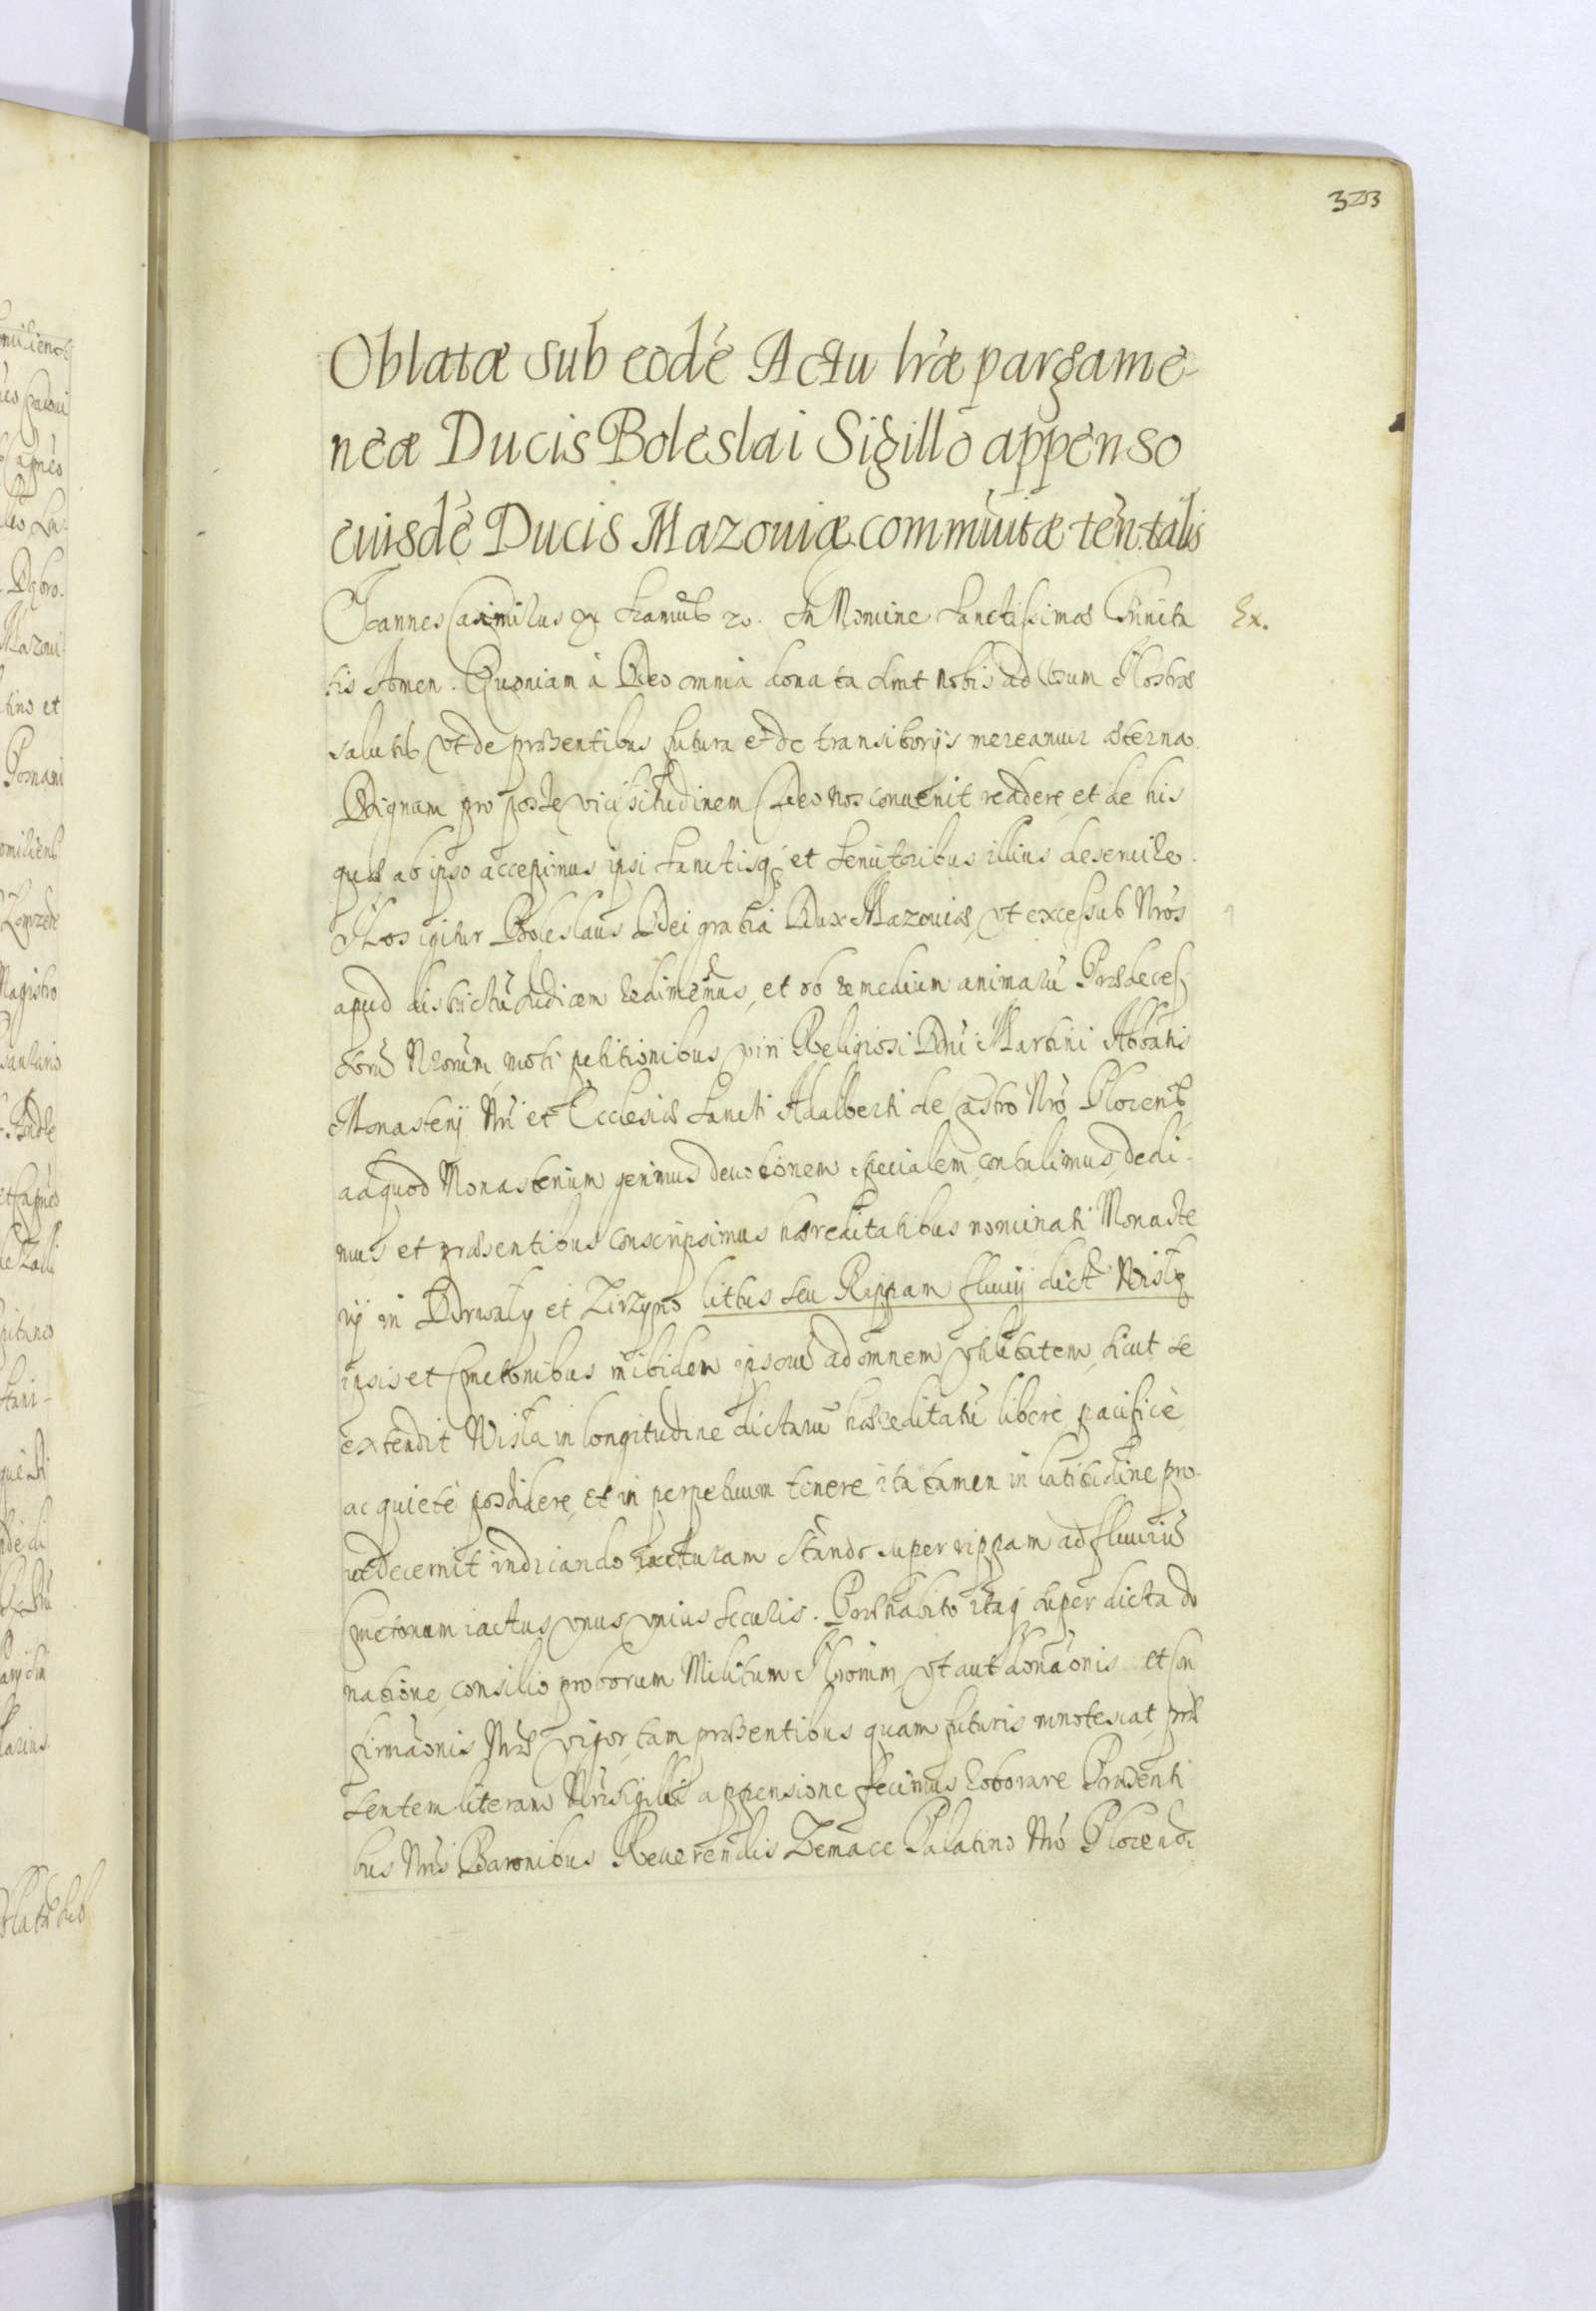 323
Oblatæ sub eodē Actu lr̄æ pargame-
neæ Ducis Boleslai Sigillo appenso
euisdē Ducis Mazouiæ com̄unitæ ten. talis
Joannes Casimirus & In Nomine Sanctissimæ Trinita Ex.
tis Amen. Quoniam à Deo omnia donata sunt nobis ad Usum Nostræ
salutis vt de præsentibus futura et de transitorijs mereamur æterna.
Dignam pro posse vicissitudinem Deo nos conuenit reddere, et de his
quæ ab ipso accepimus ipsi Sanctisq; et Seruitoribus illius deseruire.
Nos igitur Boleslaus Dei gratia Dux Mazouiæ, vt excessus Nr̄os
apud districtū Iudicem redimemus, et ob remedium animarū Prædeces
sorū Nrorum, moti petitionibus viri Religiosi Dn̄i Martini Abbatis
Monasterij Nr̄i et Ecclesiæ Sancti Adalberti de Castro Nr̄o Plocens
ad quod Monasterium gerimus deuotionem specialem, contulimus, dedi-
mus et præsentibus conscripsimus hæreditatibus nominati Monaste
rij in Drwaly et Zirzyno littus seu Rippam fluuij dicti Wisly
ipsis et Cmetonibus inibidem ipsorū ad omnem vtilitatem, sicut se
extendit Wisla in longitudine dictarū hæreditatū libere, pacifice,
ac quietè possidere, et in perpetuum tenere, ita tamen in latitudine pro-
ut decernit indriando iacturam stando super rippam ad fluuiū
Cmetonum iactus vnus vnius securis. Præhabito itaq; super dicta do
natione, consilio proborum Militum Nrorum, vt aut donāonis et Con
firmāonis Nr̄æ vigor, tam præsentibus quam futuris innotescat, præ
sentem literam Nr̄i sigilli appensione fecimus roborare Præsenti
bus Nr̄is Baronibus Reuerendis Zemace Palatino Nr̄o Plocensi